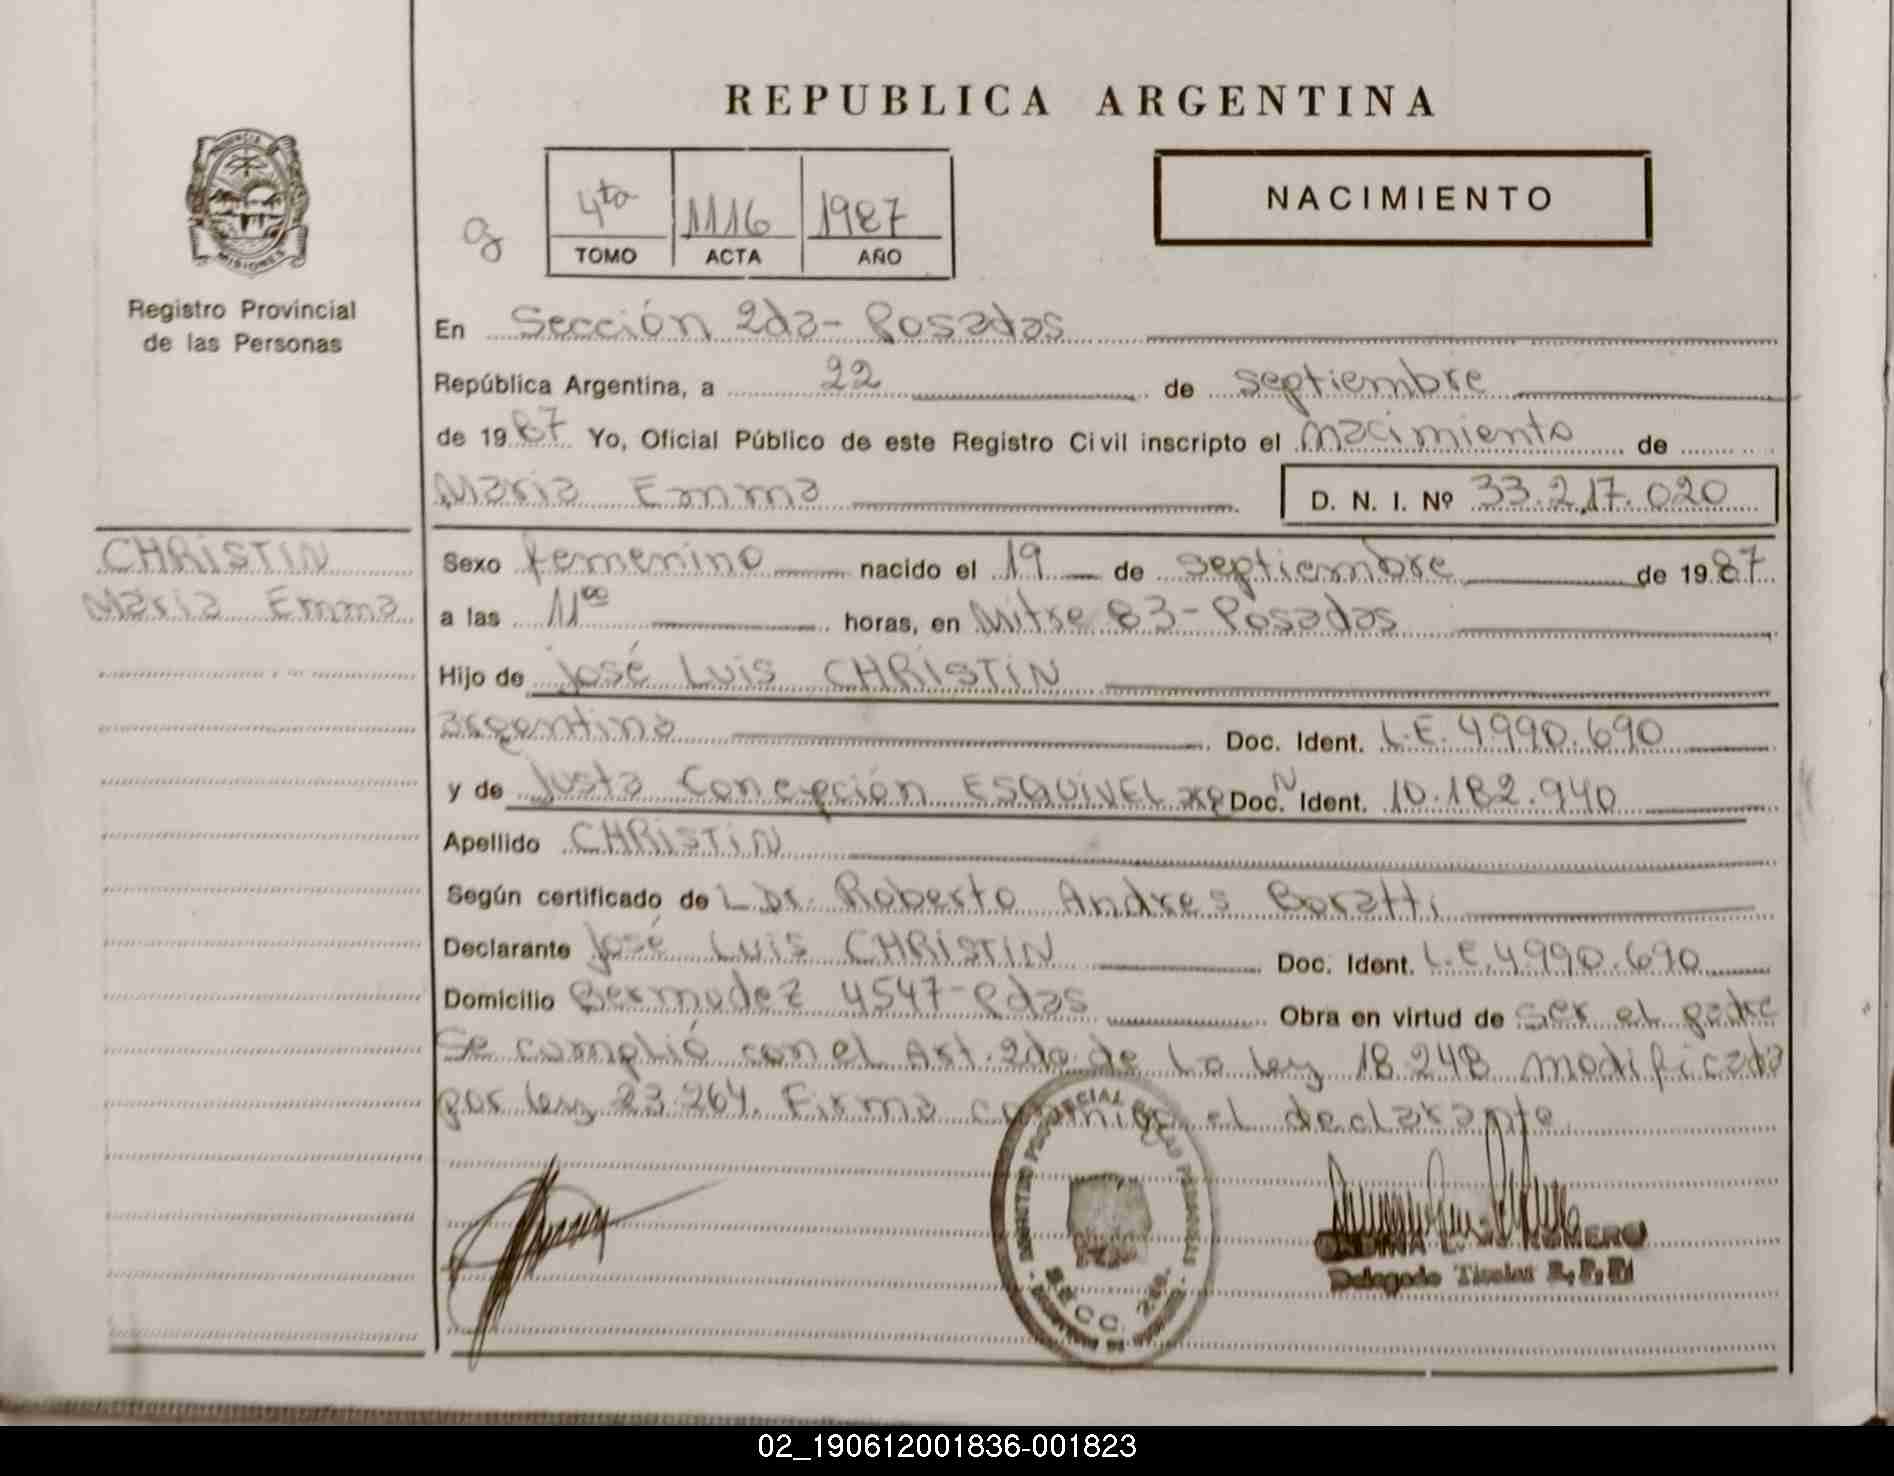 REPUBLICA ARGENTINA
PROVINCIA DE
MISIONES
Registro Provincial
de las Personas
4ta 1116 1987
TOMO ACTA AÑO
NACIMIENTO
En Sección 2da- Posadas
República Argentina, a 22 de septiembre
de 1987 Yo, Oficial Público de este Registro Civil inscripto el nacimiento de
Maria Emma D. N. I. Nº 33.217.020
CHRiSTiN
Maria Emma
Sexo femenino nacido el 19 de septiembre de 1987
a las 11⁰⁰ horas, en Mitre 83- Posadas
Hijo de José Luis CHRiSTiN
argentino Doc. Ident. L.E. 4990.690
y de Justa Concepción ESQUiVEL Doc. N Ident. 10.182.940
Apellido CHRiSTiN
Según certificado de L Dr. Roberto Andres Boratti
Declarante José Luis CHRiSTiN Doc. Ident. L.E. 4990.690
Domicilio Bermudez 4547-Pdas Obra en virtud de ser el padre
Se cumplió con el Art. 2do de la ley 18.248 modificada
por ley 23.264. Firma conmigo el declarante
SECC. 2da.
ROMERO
Delegado Titular R.P.P.
02_190612001836-001823